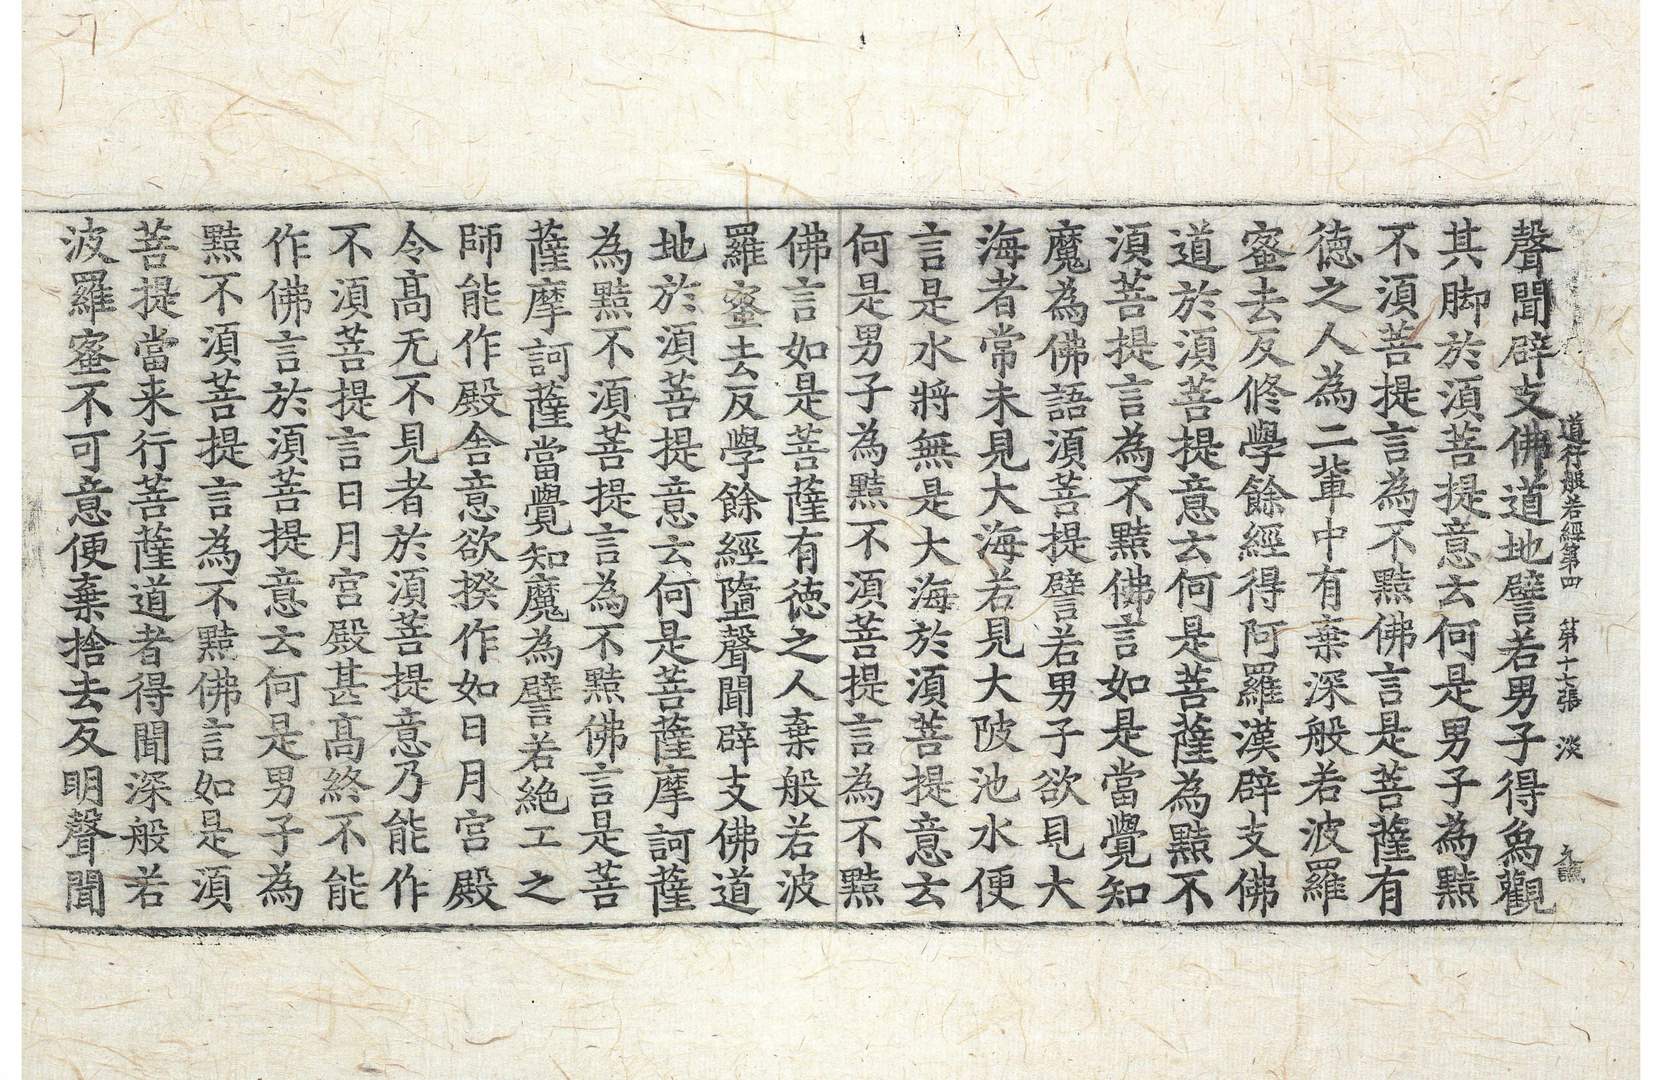 道行般若經第四 第十七張 淡
聲聞辟支佛道地譬若男子得象觀
其脚於須菩提意云何是男子為黠
不須菩提言為不黠佛言是菩薩有
徳之人為二輩中有棄深般若波羅
蜜去反修學餘經得阿羅漢辟支佛
道於須菩提意云何是菩薩為黠不
須菩提言為不黠佛言如是當覺知
魔為佛語須菩提譬若男子欲見大
海者常未見大海若見大陂池水便
言是水將無是大海於須菩提意云
何是男子為黠不須菩提言為不黠
佛言如是菩薩有徳之人棄般若波
羅蜜去反學餘經墮聲聞辟支佛道
地於須菩提意云何是菩薩摩訶薩
為黠不須菩提言為不黠佛言是菩
薩摩訶薩當覺知魔為譬若絶工之
師能作殿舍意欲揆作如日月宮殿
令高无不見者於須菩提意乃能作
不須菩提言日月宮殿甚高終不能
作佛言於須菩提意云何是男子為
黠不須菩提言為不黠佛言如是須
菩提當来行菩薩道者得聞深般若
波羅蜜不可意便棄捨去反明聲聞